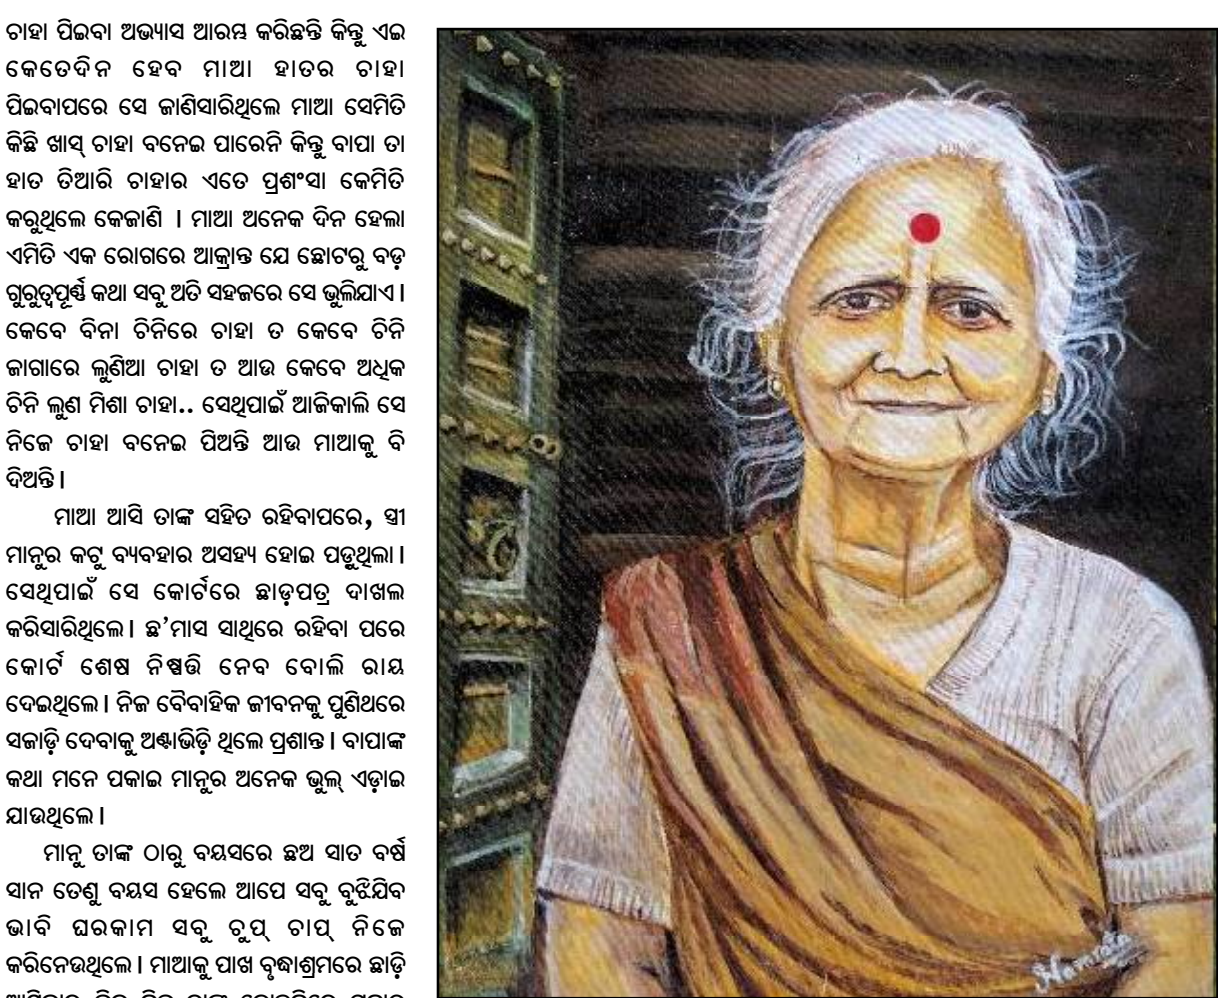 ଚାହା ପିଇବା ଅଭ୍ୟାସ ଆରମ୍ଭ କରିଛନ୍ତି କିନ୍ତୁ ଏଇ
କେତେଦିନ ହେବ ମାଆ ହାତର ଚାହା
ପିଇବାପରେ ସେ ଜାଣିସାରିଥିଲେ ମାଆ ସେମିତି
କିଛି ଖାସ୍ ଚାହା ବନେଇ ପାରେନି କିନ୍ତୁ ବାପା ତା
ହାତ ତିଆରି ଚାହାର ଏତେ ପ୍ରଶଂସା କେମିତି
କରୁଥିଲେ କେଜାଣି । ମାଆ ଅନେକ ଦିନ ହେଲା
ଏମିତି ଏକ ରୋଗରେ ଆକ୍ରାନ୍ତ ଯେ ଛୋଟରୁ ବଡ଼
ଗୁରୁତ୍ୱପୂର୍ଣ୍ଣ କଥା ସବୁ ଅତି ସହଜରେ ସେ ଭୁଲିଯାଏ ।
କେବେ ବିନା ଚିନିରେ ଚାହା ତ କେବେ ଚିନି
ଜାଗାରେ ଲୁଣିଆ ଚାହା ତ ଆଉ କେବେ ଅଧିକ
ଚିନି ଲୁଣ ମିଶା ଚାହା.. ସେଥିପାଇଁ ଆଜିକାଲି ସେ
ନିଜେ ଚାହା ବନେଇ ପିଅନ୍ତି ଆଉ ମାଆକୁ ବି
ଦିଅନ୍ତି ।
ମାଆ ଆସି ତାଙ୍କ ସହିତ ରହିବାପରେ, ସ୍ତ୍ରୀ
ମାନୁର କଟୁ ବ୍ୟବହାର ଅସହ୍ୟ ହୋଇ ପଡୁଥିଲା ।
ସେଥିପାଇଁ ସେ କୋର୍ଟରେ ଛାଡ଼ପତ୍ର ଦାଖଲ
କରିସାରିଥିଲେ । ଛ'ମାସ ସାଥିରେ ରହିବା ପରେ
କୋର୍ଟ ଶେଷ ନିଷ୍ପତ୍ତି ନେବ ବୋଲି ରାୟ
ଦେଇଥିଲେ । ନିଜ ବୈବାହିକ ଜୀବନକୁ ପୁଣିଥରେ
ସଜାଡ଼ି ଦେବାକୁ ଅଣ୍ଟାଭିଡ଼ି ଥିଲେ ପ୍ରଶାନ୍ତ । ବାପାଙ୍କ
କଥା ମନେ ପକାଇ ମାନୁର ଅନେକ ଭୁଲ୍ ଏଡ଼ାଇ
ଯାଉଥିଲେ ।
ମାନୁ ତାଙ୍କ ଠାରୁ ବୟସରେ ଛଅ ସାତ ବର୍ଷ
ସାନ ତେଣୁ ବୟସ ହେଲେ ଆପେ ସବୁ ବୁଝିଯିବ
ଭାବି ଘରକାମ ସବୁ ଚୁପ୍ ଚାପ୍ ନିଜେ
କରିନେଉଥିଲେ । ମାଆକୁ ପାଖ ବୃଦ୍ଧାଶ୍ରମରେ ଛାଡ଼ି